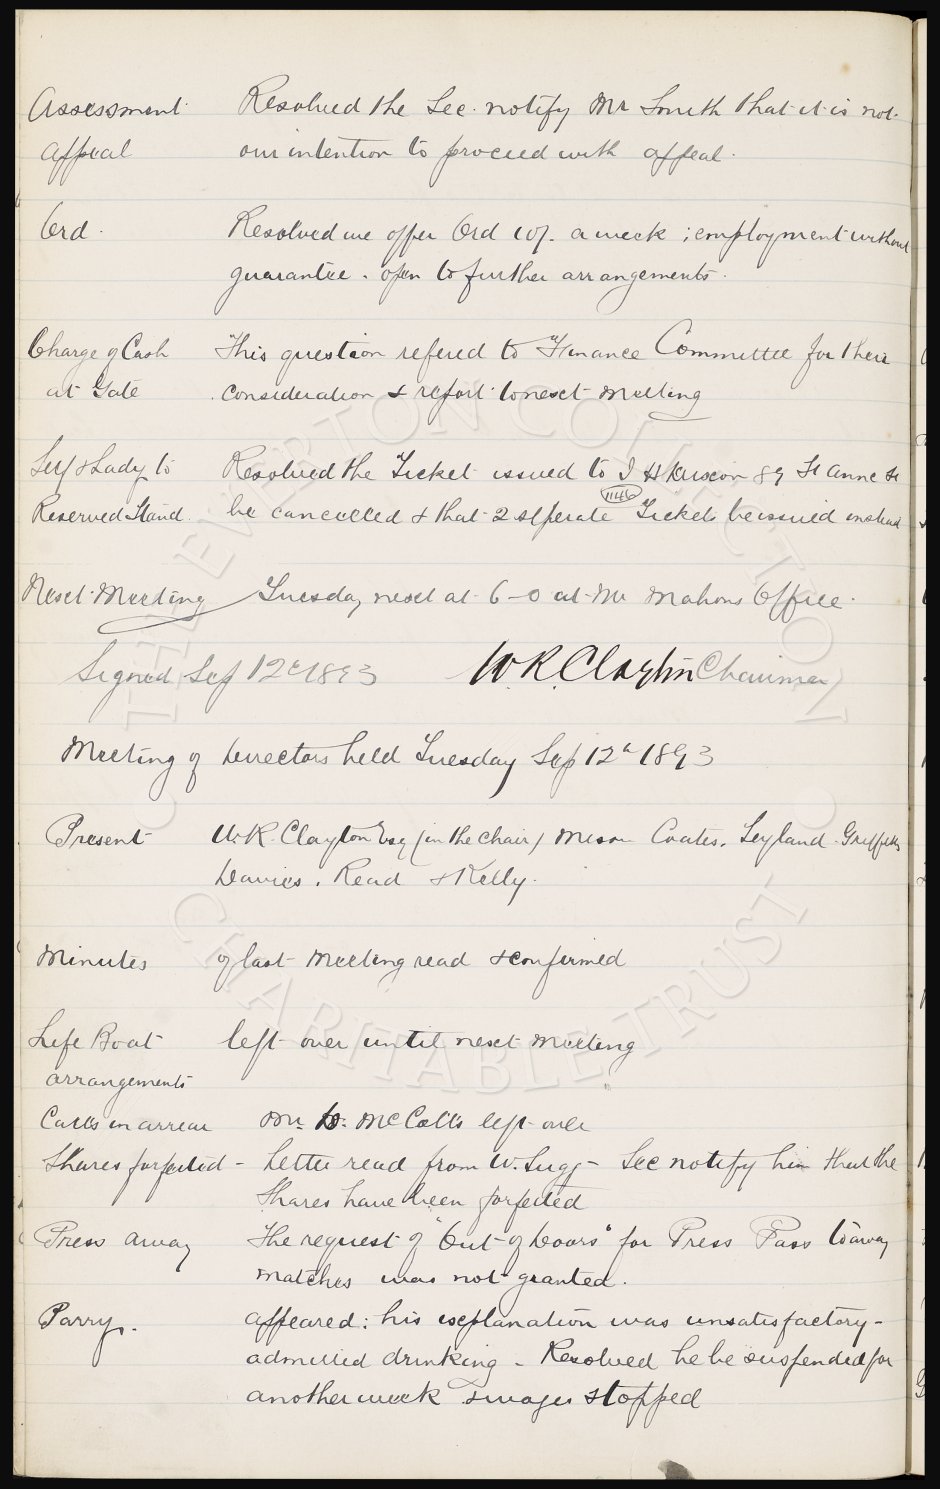 Assessment Resolved the Sec. notify Mr Smith that it is not
Appeal our intention to proceed with appeal.
Ord. Resolved we offer Ord 10/- a week ; employment without
guarantee. open to further arrangements.
Charge of Cash This question refered to Finance Committee for their
at Gate consideration & report to next meeting
Self & Lady to Resolved the Ticket issued to J H 89 St Anne St
1146
Reserved Stand. be cancelled & that 2 seperate Tickets be issued instead
Next Meeting Tuesday next at 6-0 at Mr Mahons Office.
Signed Sep 12th 1893 W.R. Clayton Chairman
Meeting of Directors held Tuesday Sep 12th 1893
Present W.R. Clayton Esq (in the chair) Messrs Coates, Leyland. Griffiths
Davies. Read & Kelly.
Minutes of last meeting read & confirmed
Life Boat left over until next meeting
arrangements
Calls in arrear Mr. D. McColl's left over
Shares forfeited - Letter read from W. Sugg - Sec notify him that the
Shares have been forfeited
Press away The request of "Out of Doors" for Press Pass to away
matches was not granted.
Parry. appeared: his explanation was unsatisfactory -
admitted drinking - Resolved he be suspended for
another week & wages stopped
THE EVERTON COLLECTION
CHARITABLE TRUST